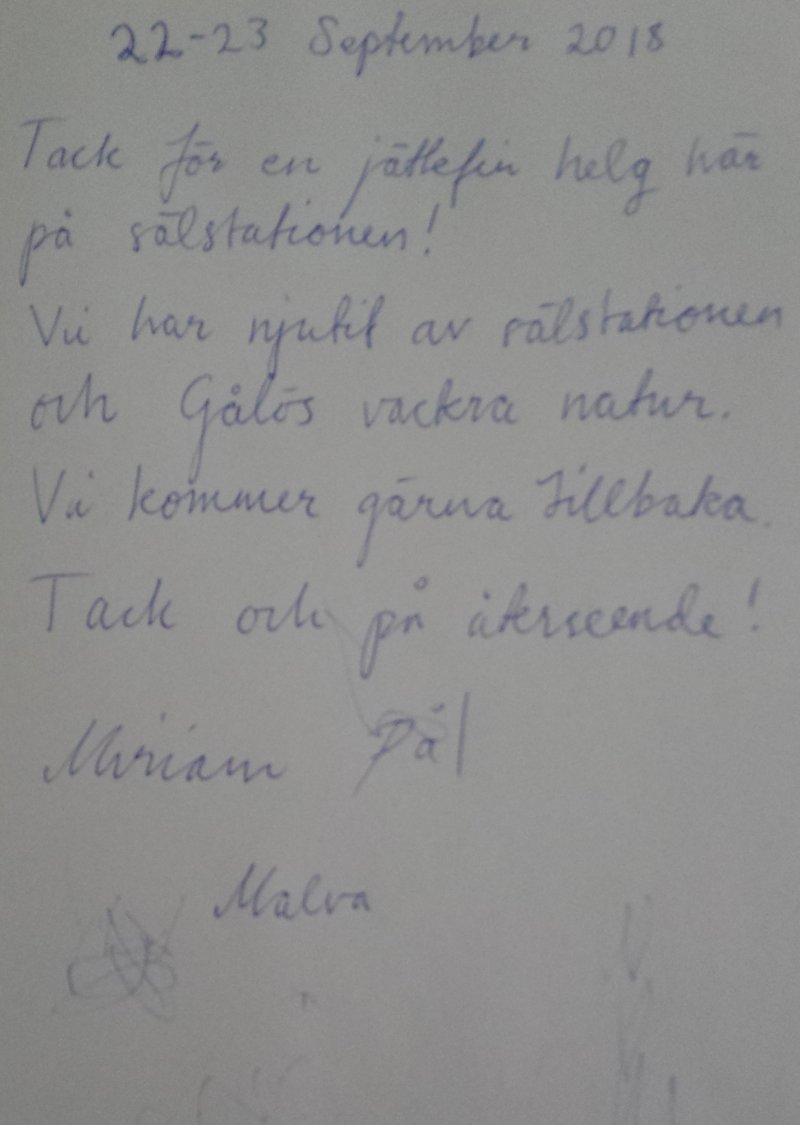 22-23 September 2018
Tack för en jättefin helg här
på sälstationen!
Vi har njutit av sälstationen
och Gålös vackra natur.
Vi kommer gärna tillbaka.
Tack och på återseende!
Miriam Pål
Malva